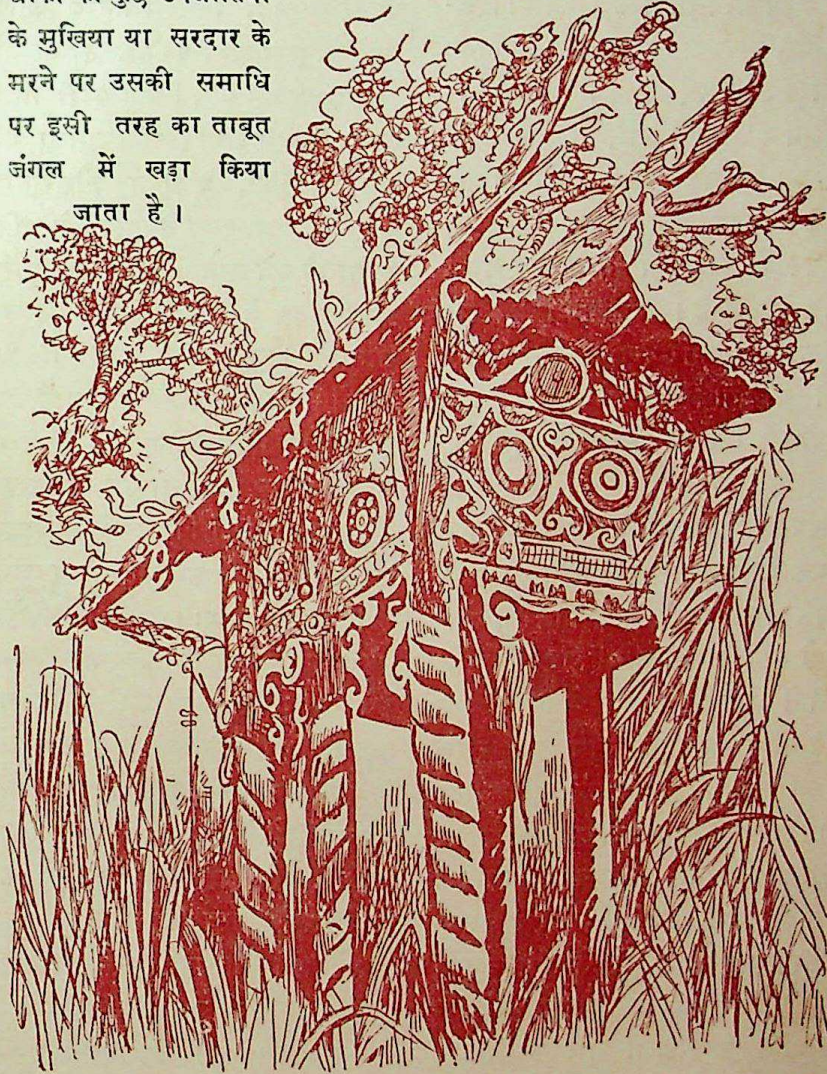 के मुखिया या सरदार के
मरने पर उसकी समाधि
पर इसी तरह का ताबूत
जंगल में खड़ा किया
जाता है ।